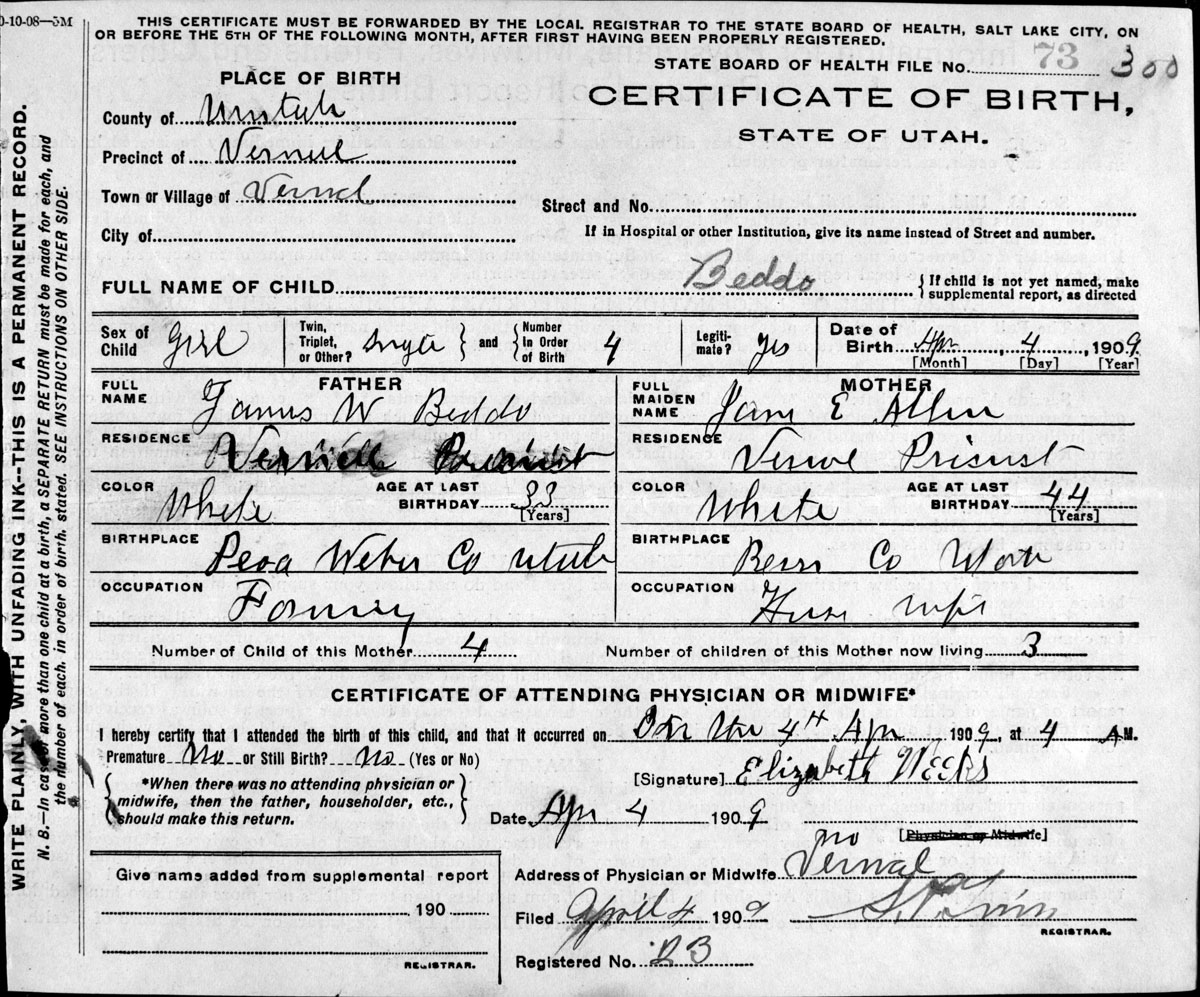 0-10-08—5M
THIS CERTIFICATE MUST BE FORWARDED BY THE LOCAL REGISTRAR TO THE STATE BOARD OF HEALTH, SALT LAKE CITY, ON
OR BEFORE THE 5TH OF THE FOLLOWING MONTH, AFTER FIRST HAVING BEEN PROPERLY REGISTERED.
STATE BOARD OF HEALTH FILE No. 73 300
PLACE OF BIRTH
CERTIFICATE OF BIRTH,
STATE OF UTAH.
County of
Precinct of Vernal
Town or Village of Vernal
Street and No.
City of
If in Hospital or other Institution, give its name instead of Street and number.
FULL NAME OF CHILD Beddo { If child is not yet named, make
supplemental report, as directed
Sex of Child Girl Twin, Triplet, or Other? Single } and { Number in Order of Birth 4 Legiti-mate? yes Date of Birth Apr, 4, 1909
[Month] [Day] [Year]
FATHER
FULL NAME James W Beddo
RESIDENCE
COLOR White AGE AT LAST BIRTHDAY 33
[Years]
BIRTHPLACE Weber Co Utah
OCCUPATION
MOTHER
FULL MAIDEN NAME Jane E Allen
RESIDENCE
COLOR White AGE AT LAST BIRTHDAY 44
[Years]
BIRTHPLACE Co
OCCUPATION House wife
Number of Child of this Mother 4 Number of children of this Mother now living 3
CERTIFICATE OF ATTENDING PHYSICIAN OR MIDWIFE*
I hereby certify that I attended the birth of this child, and that it occurred on 4th Apr 1909, at 4 AM.
Premature No or Still Birth? No (Yes or No)
[Signature] Elizabeth Weeks
{ *When there was no attending physician or
midwife, then the father, householder, etc.,
should make this return. }
Date Apr 4 1909
no [Physician or Midwife]
Address of Physician or Midwife Vernal
Filed April 4 1909
REGISTRAR.
Registered No.
Give name added from supplemental report
190
REGISTRAR.
WRITE PLAINLY, WITH UNFADING INK--THIS IS A PERMANENT RECORD.
N. B.—In case of more than one child at a birth, a SEPARATE RETURN must be made for each, and
the number of each, in order of birth, stated. SEE INSTRUCTIONS ON OTHER SIDE.